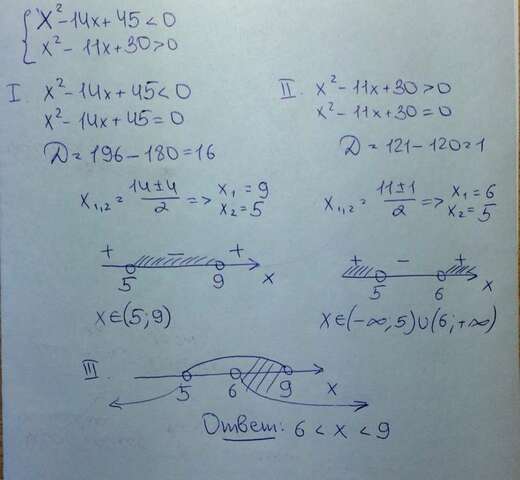 { x² - 14x + 45 < 0
x² - 11x + 30 > 0
I. x² - 14x + 45 < 0
x² - 14x + 45 = 0
D = 196 - 180 = 16
x₁,₂ = (14 ± 4)/2 => x₁ = 9
x₂ = 5
+ - +
5 9 x
x ∈ (5; 9)
II. x² - 11x + 30 > 0
x² - 11x + 30 = 0
D = 121 - 120 = 1
x₁,₂ = (11 ± 1)/2 => x₁ = 6
x₂ = 5
+ - +
5 6 x
x ∈ (-∞; 5) ∪ (6; +∞)
III.
5 6 9 x
Ответ: 6 < x < 9